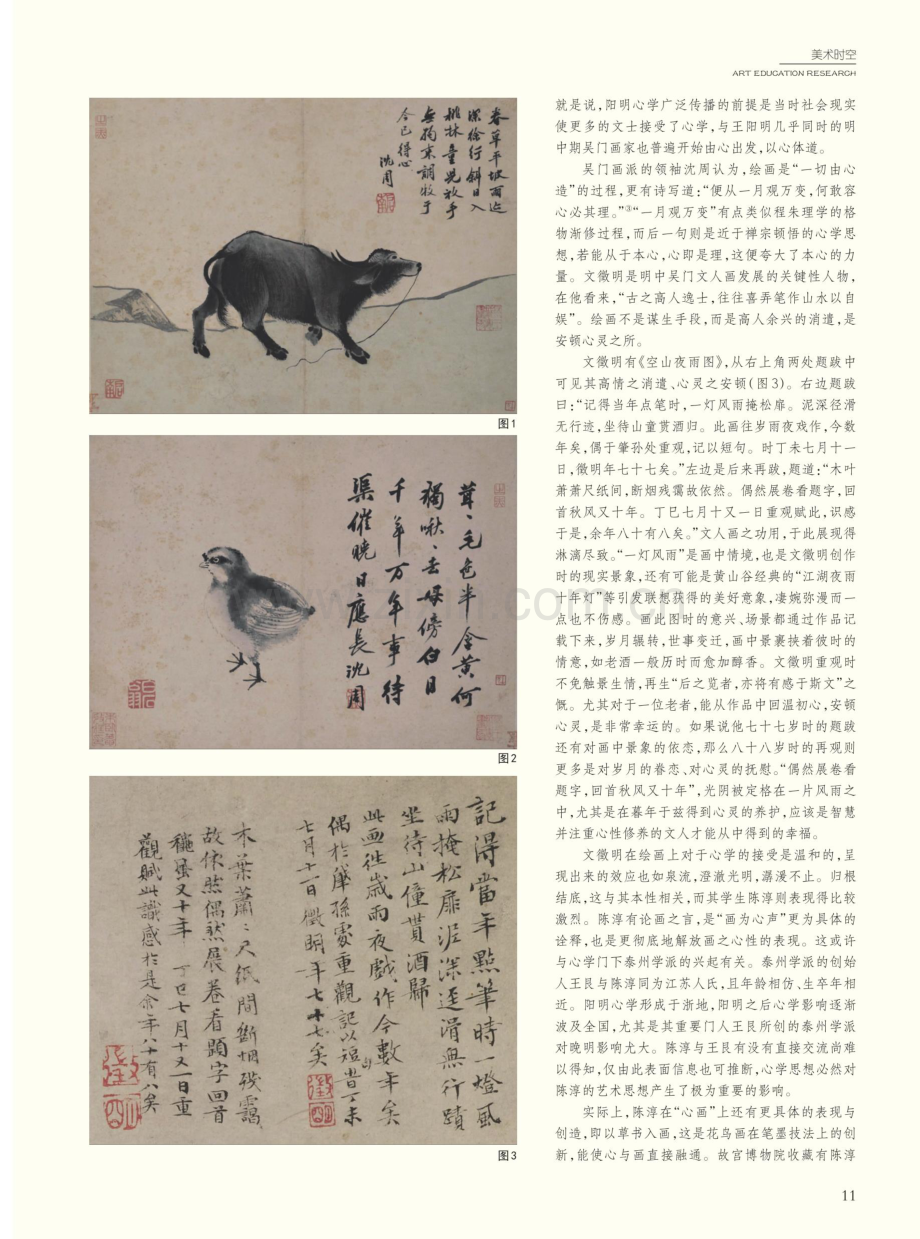 美术时空
ART EDUCATION RESEARCH
春草平坡雨迹
深徐行斜日入
桃林童児放手
無拘束調牧于
今已得心
沈周
图1
茸〻毛色半含黄何
獨啾〻去母傍白日
千年万年事待
渠催曉日應長沈周
图2
記得當年點筆時一燈風
雨掩松扉泥深逕滑無行蹟
坐待山僮貰酒歸
此画徃歳雨夜戲作今數年矣
偶於肇孫處重觀記以短句時丁未
七月十一日徵明年七十七矣
木葉蕭〻尺紙間斷烟殘靄
故依然偶然展卷看題字回首
穐風又十年 丁巳七月十又一日重
觀賦此識感於是余年八十有八矣
图3
就是说，阳明心学广泛传播的前提是当时社会现实
使更多的文士接受了心学，与王阳明几乎同时的明
中期吴门画家也普遍开始由心出发，以心体道。
吴门画派的领袖沈周认为，绘画是“一切由心
造”的过程，更有诗写道：“便从一月观万变，何敢容
心必其理。”③“一月观万变”有点类似程朱理学的格
物渐修过程，而后一句则是近于禅宗顿悟的心学思
想，若能从于本心，心即是理，这便夸大了本心的力
量。文徵明是明中吴门文人画发展的关键性人物，
在他看来，“古之高人逸士，往往喜弄笔作山水以自
娱”。绘画不是谋生手段，而是高人余兴的消遣，是
安顿心灵之所。
文徵明有《空山夜雨图》，从右上角两处题跋中
可见其高情之消遣、心灵之安顿（图3）。右边题跋
曰：“记得当年点笔时，一灯风雨掩松扉。泥深径滑
无行迹，坐待山童贳酒归。此画往岁雨夜戏作，今数
年矣，偶于肇孙处重观，记以短句。时丁未七月十一
日，徵明年七十七矣。”左边是后来再跋，题道：“木叶
萧萧尺纸间，断烟残霭故依然。偶然展卷看题字，回
首秋风又十年。丁巳七月十又一日重观赋此，识感
于是，余年八十有八矣。”文人画之功用，于此展现得
淋漓尽致。“一灯风雨”是画中情境，也是文徵明创作
时的现实景象，还有可能是黄山谷经典的“江湖夜雨
十年灯”等引发联想获得的美好意象，凄婉弥漫而一
点也不伤感。画此图时的意兴、场景都通过作品记
载下来，岁月辗转，世事变迁，画中景裹挟着彼时的
情意，如老酒一般历时而愈加醇香。文徵明重观时
不免触景生情，再生“后之览者，亦将有感于斯文”之
慨。尤其对于一位老者，能从作品中回温初心，安顿
心灵，是非常幸运的。如果说他七十七岁时的题跋
还有对画中景象的依恋，那么八十八岁时的再观则
更多是对岁月的眷恋、对心灵的抚慰。“偶然展卷看
题字，回首秋风又十年”，光阴被定格在一片风雨之
中，尤其是在暮年于兹得到心灵的养护，应该是智慧
并注重心性修养的文人才能从中得到的幸福。
文徵明在绘画上对于心学的接受是温和的，呈
现出来的效应也如泉流，澄澈光明，潺湲不止。归根
结底，这与其本性相关，而其学生陈淳则表现得比较
激烈。陈淳有论画之言，是“画为心声”更为具体的
诠释，也是更彻底地解放画之心性的表现。这或许
与心学门下泰州学派的兴起有关。泰州学派的创始
人王艮与陈淳同为江苏人氏，且年龄相仿、生卒年相
近。阳明心学形成于浙地，阳明之后心学影响逐渐
波及全国，尤其是其重要门人王艮所创的泰州学派
对晚明影响尤大。陈淳与王艮有没有直接交流尚难
以得知，仅由此表面信息也可推断，心学思想必然对
陈淳的艺术思想产生了极为重要的影响。
实际上，陈淳在“心画”上还有更具体的表现与
创造，即以草书入画，这是花鸟画在笔墨技法上的创
新，能使心与画直接融通。故宫博物院收藏有陈淳
11